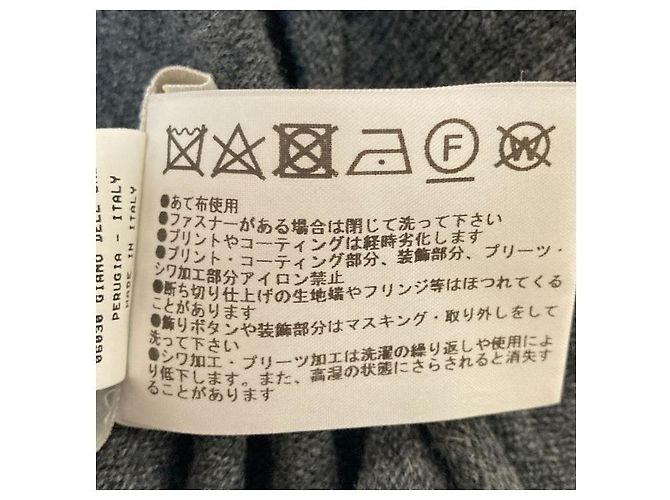 F
W
●あて布使用
●ファスナーがある場合は閉じて洗って下さい
●プリントやコーティングは経時劣化します
●プリント・コーティング部分、装飾部分、プリーツ・
シワ加工部分アイロン禁止
●断ち切り仕上げの生地端やフリンジ等はほつれてくる
ことがあります
●飾りボタンや装飾部分はマスキング・取り外しをして
洗って下さい
●シワ加工・プリーツ加工は洗濯の繰り返しや使用によ
り低下します。また、高湿の状態にさらされると消失す
ることがあります
06030 GIANO DELL'
PERUGIA - ITALY
MADE IN ITALY